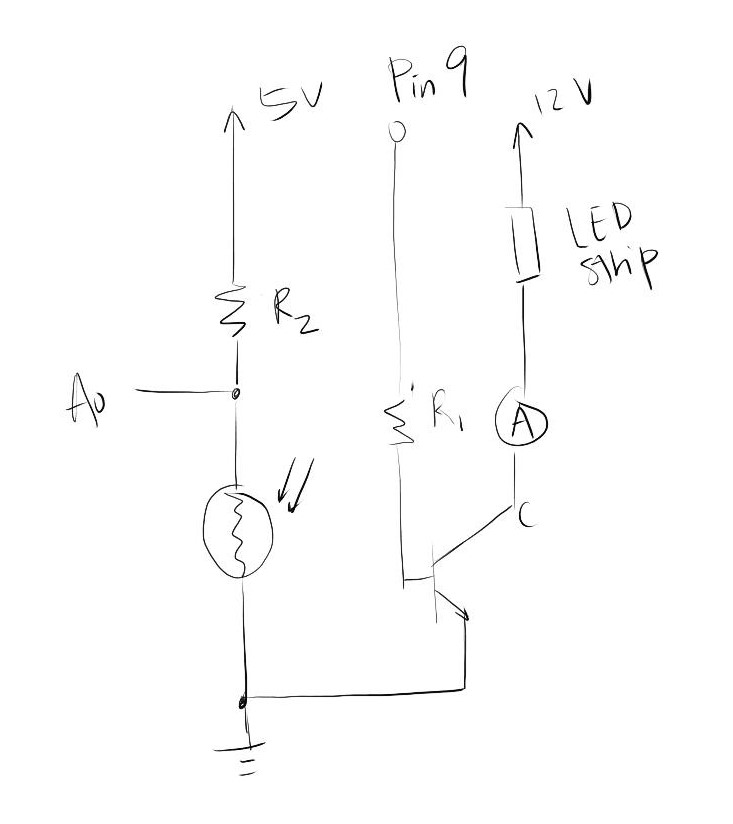 5V
Pin 9
12V
LED
strip
R2
A0
R1
A
C